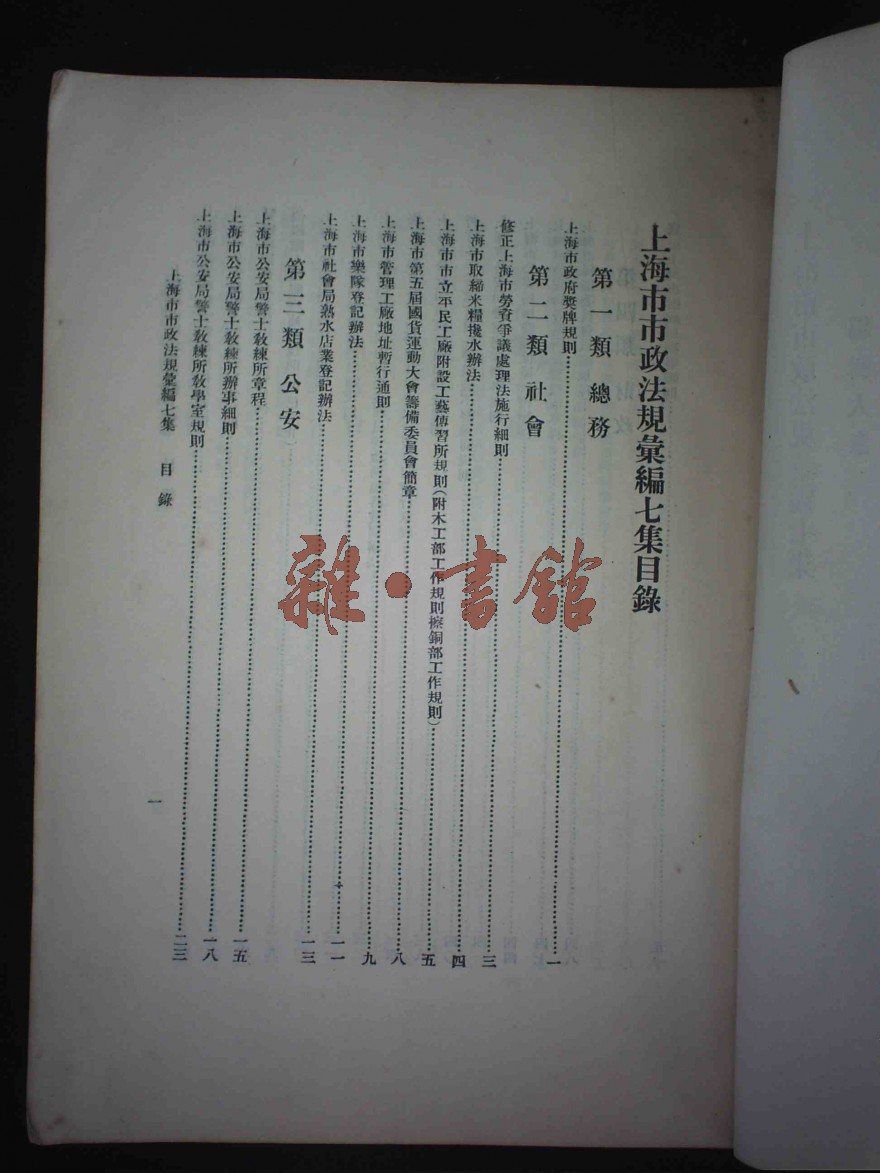 上海市市政法規彙編七集目錄
第一類 總務
上海市政府獎牌規則……一
第二類 社會
修正上海市勞資爭議處理法施行細則……三
上海市取締米糧攙水辦法……四
上海市市立平民工廠附設工藝傳習所規則(附木工部工作規則擦銅部工作規則)……五
上海市第五屆國貨運動大會籌備委員會簡章……八
上海市管理工廠地址暫行通則……九
上海市樂隊登記辦法……一一
上海市社會局熟水店業登記辦法……一三
第三類 公安
上海市公安局警士教練所章程……一五
上海市公安局警士教練所辦事細則……一八
上海市公安局警士教練所教學室規則……二三
上海市市政法規彙編七集 目錄
一
雜·書館